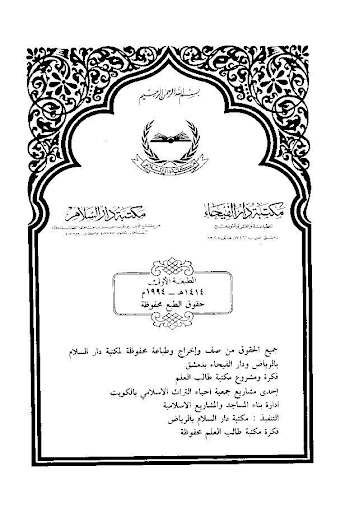 بسم الله الرحمن الرحيم
مكتبة دار الفيحاء
للطباعة والنشر والتوزيع
مكتبة دار السلام
الطبعة الأولى
١٤١٤هـ - ١٩٩٤م
حقوق الطبع محفوظة
جميع الحقوق من صف وإخراج وطباعة محفوظة لمكتبة دار السلام
بالرياض ودار الفيحاء بدمشق
فكرة ومشروع مكتبة طالب العلم
إحدى مشاريع جمعية احياء التراث الاسلامي بالكويت
ادارة بناء المساجد والمشاريع الاسلامية
التنفيذ : مكتبة دار السلام بالرياض
فكرة مكتبة طالب العلم محفوظة